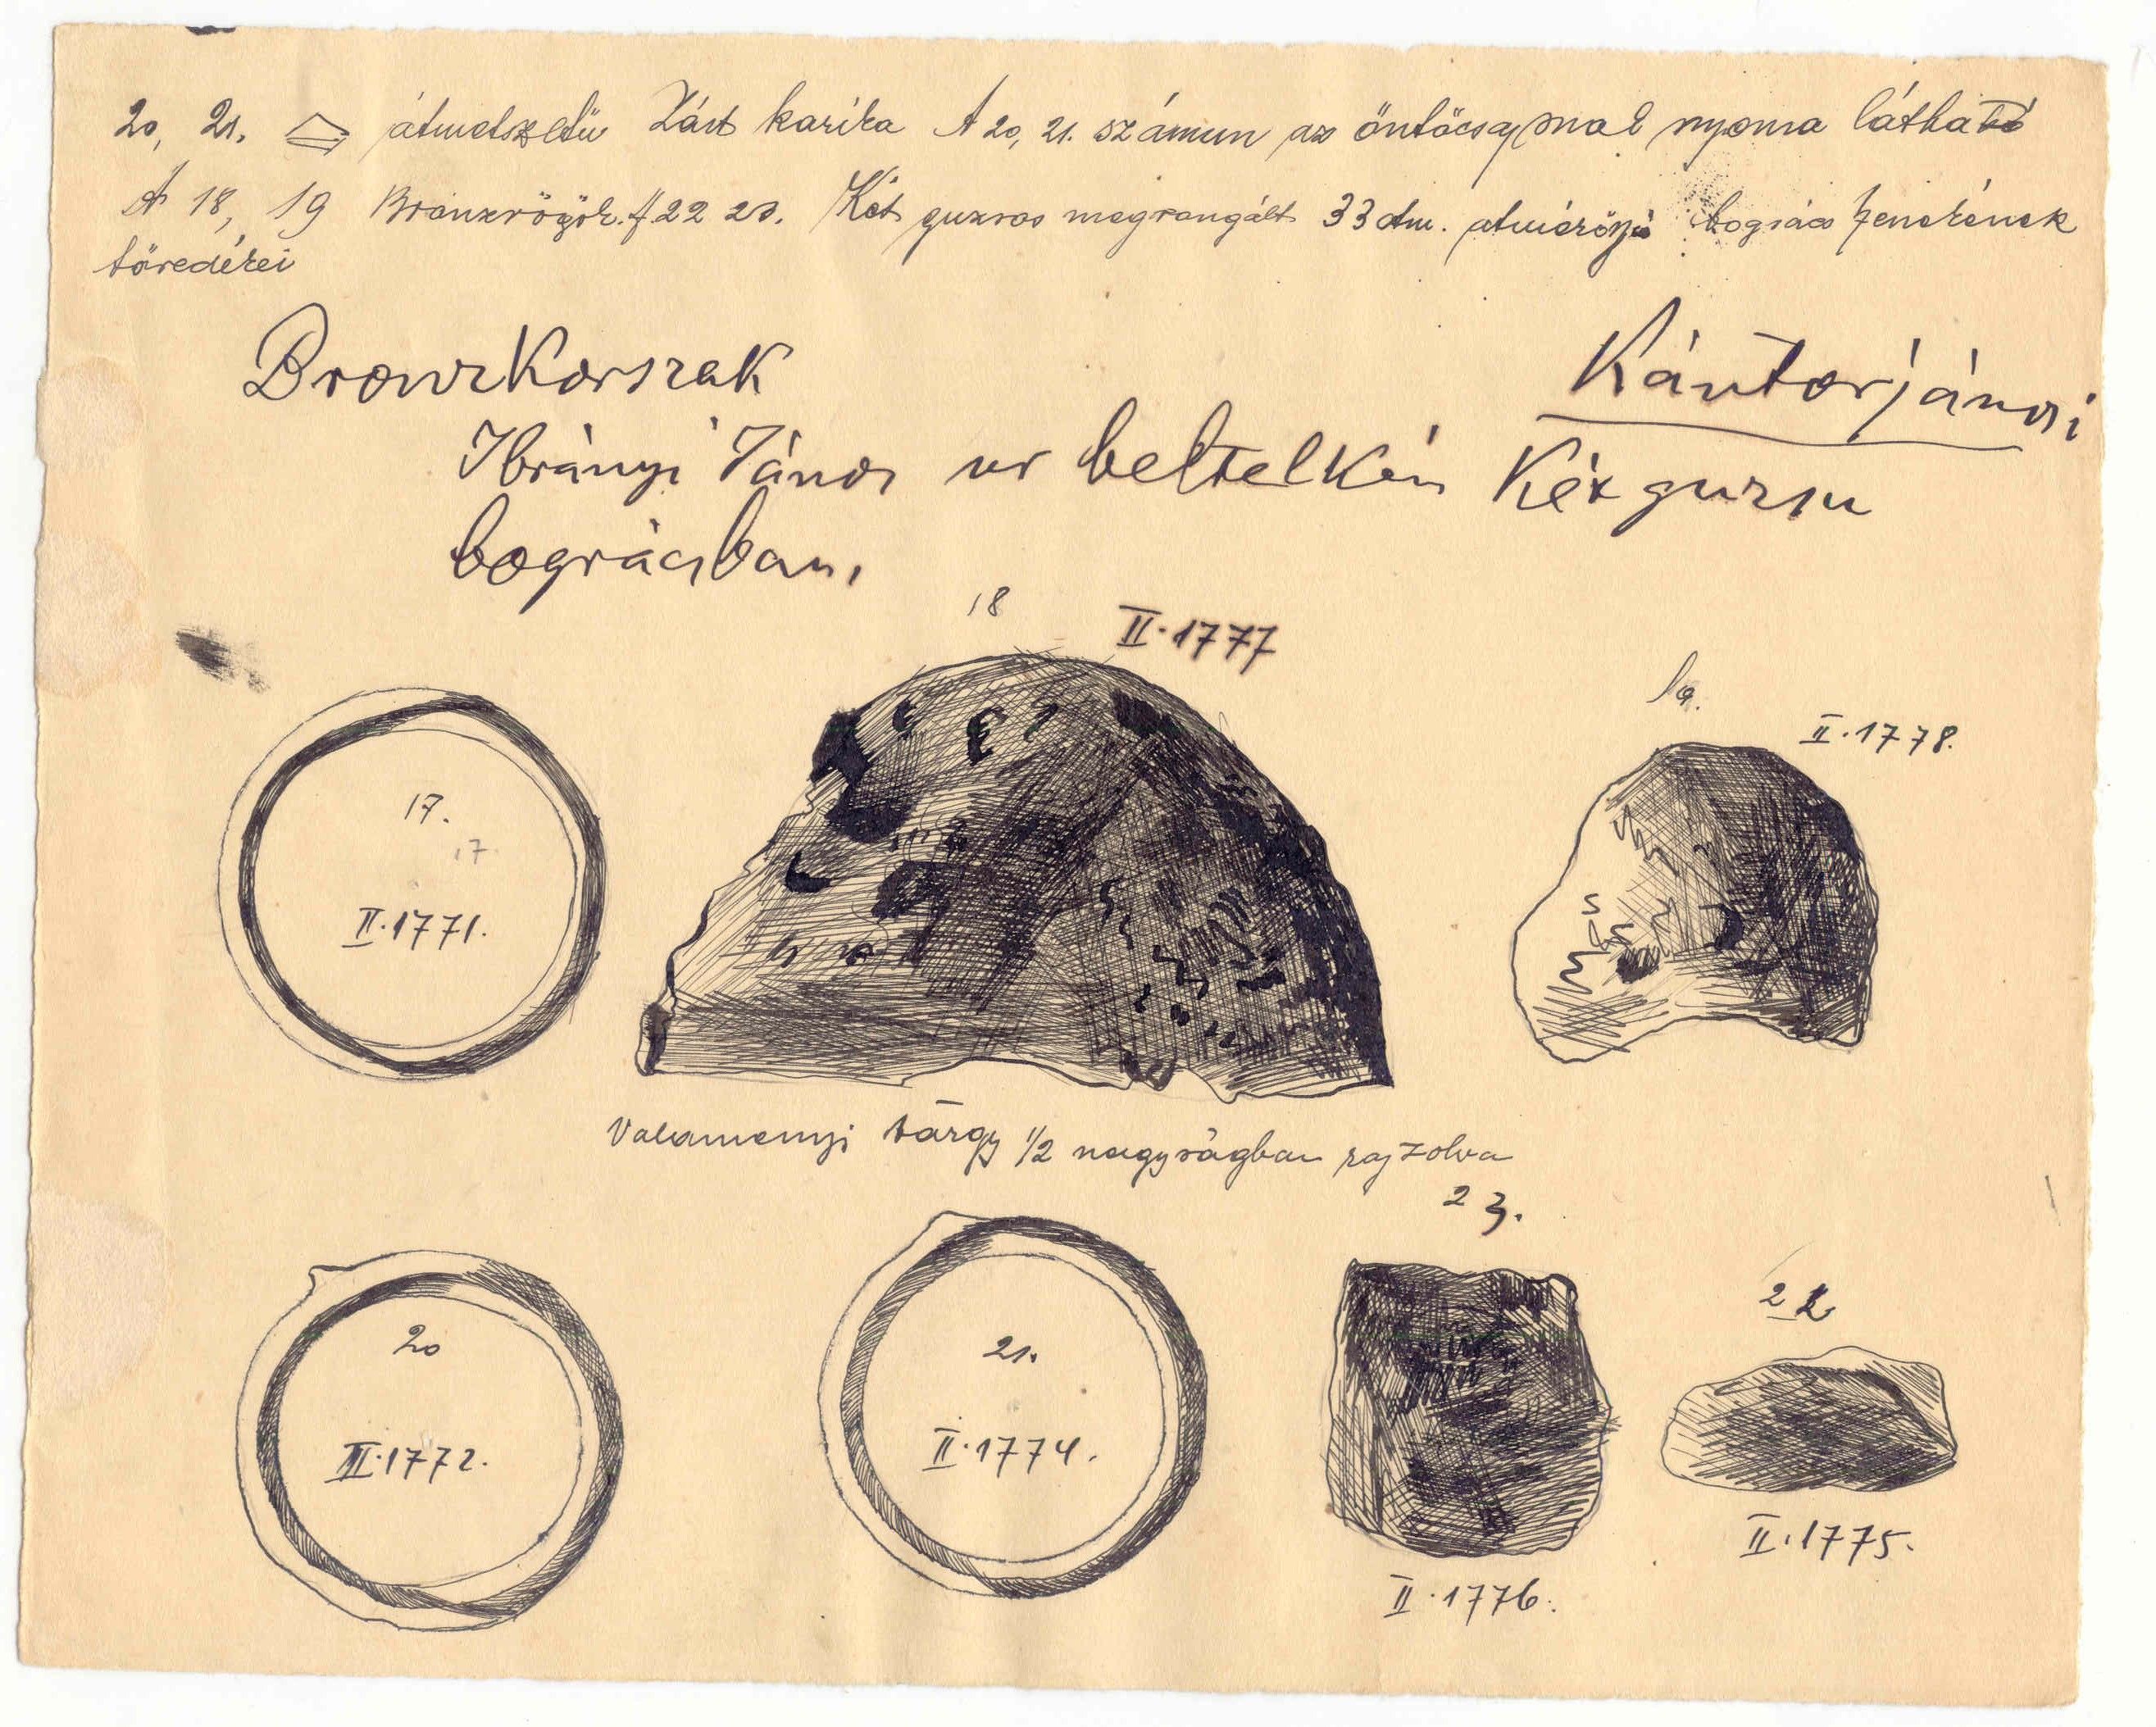 20, 21. átmetszetü Zárt karika A 20, 21. számun az öntöcsapnak nyoma látható
A 18, 19 Bronzrögök. A 22 23. Két guzsos megrongált 33 ctm. átmérőjü bogrács fenekének
töredékei
Bronzkorszak
Kántorjánosi
Ibrányi János ur beltelkén Két guzsu
bográcsban.
18
II.1777
19.
II.1778.
17.
17
II.1771.
Valamenyi tárgy 1/2 nagyságban rajzolva
23.
22
20
21.
II.1772.
II.1774.
II.1775.
II.1776.